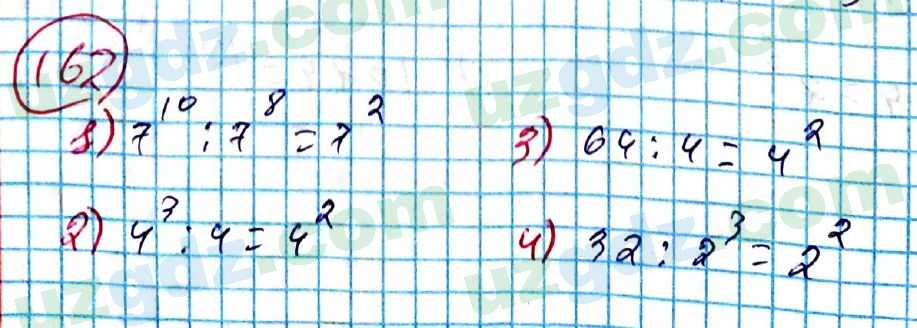 162
1) 7¹⁰ : 7⁸ = 7²
3) 64 : 4 = 4²
2) 4³ : 4 = 4²
4) 32 : 2³ = 2²
uzgdz.com